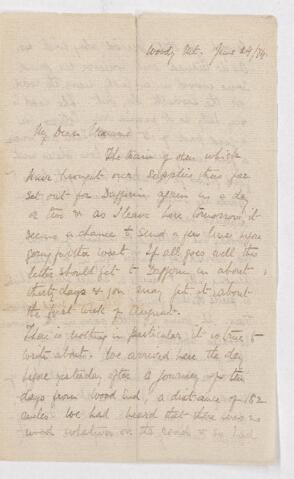 Woody Mt. June 24/74
My Dear Mamma
The train of oxen which
have brought our supplies thus far
set out for Dufferin again in a day
or two & as I leave here tomorrow, it
seems a chance to send a few lines before
going further west. If all goes well this
letter should get to Dufferin in about
thirty days & you may get it about
the first week of August.
There is nothing in particular it is true to
write about. We arrived here the day
before yesterday after a journey of ten
days from Wood End, a distance of 182
miles. We had heard that there was no
wood whatever on the road & so had